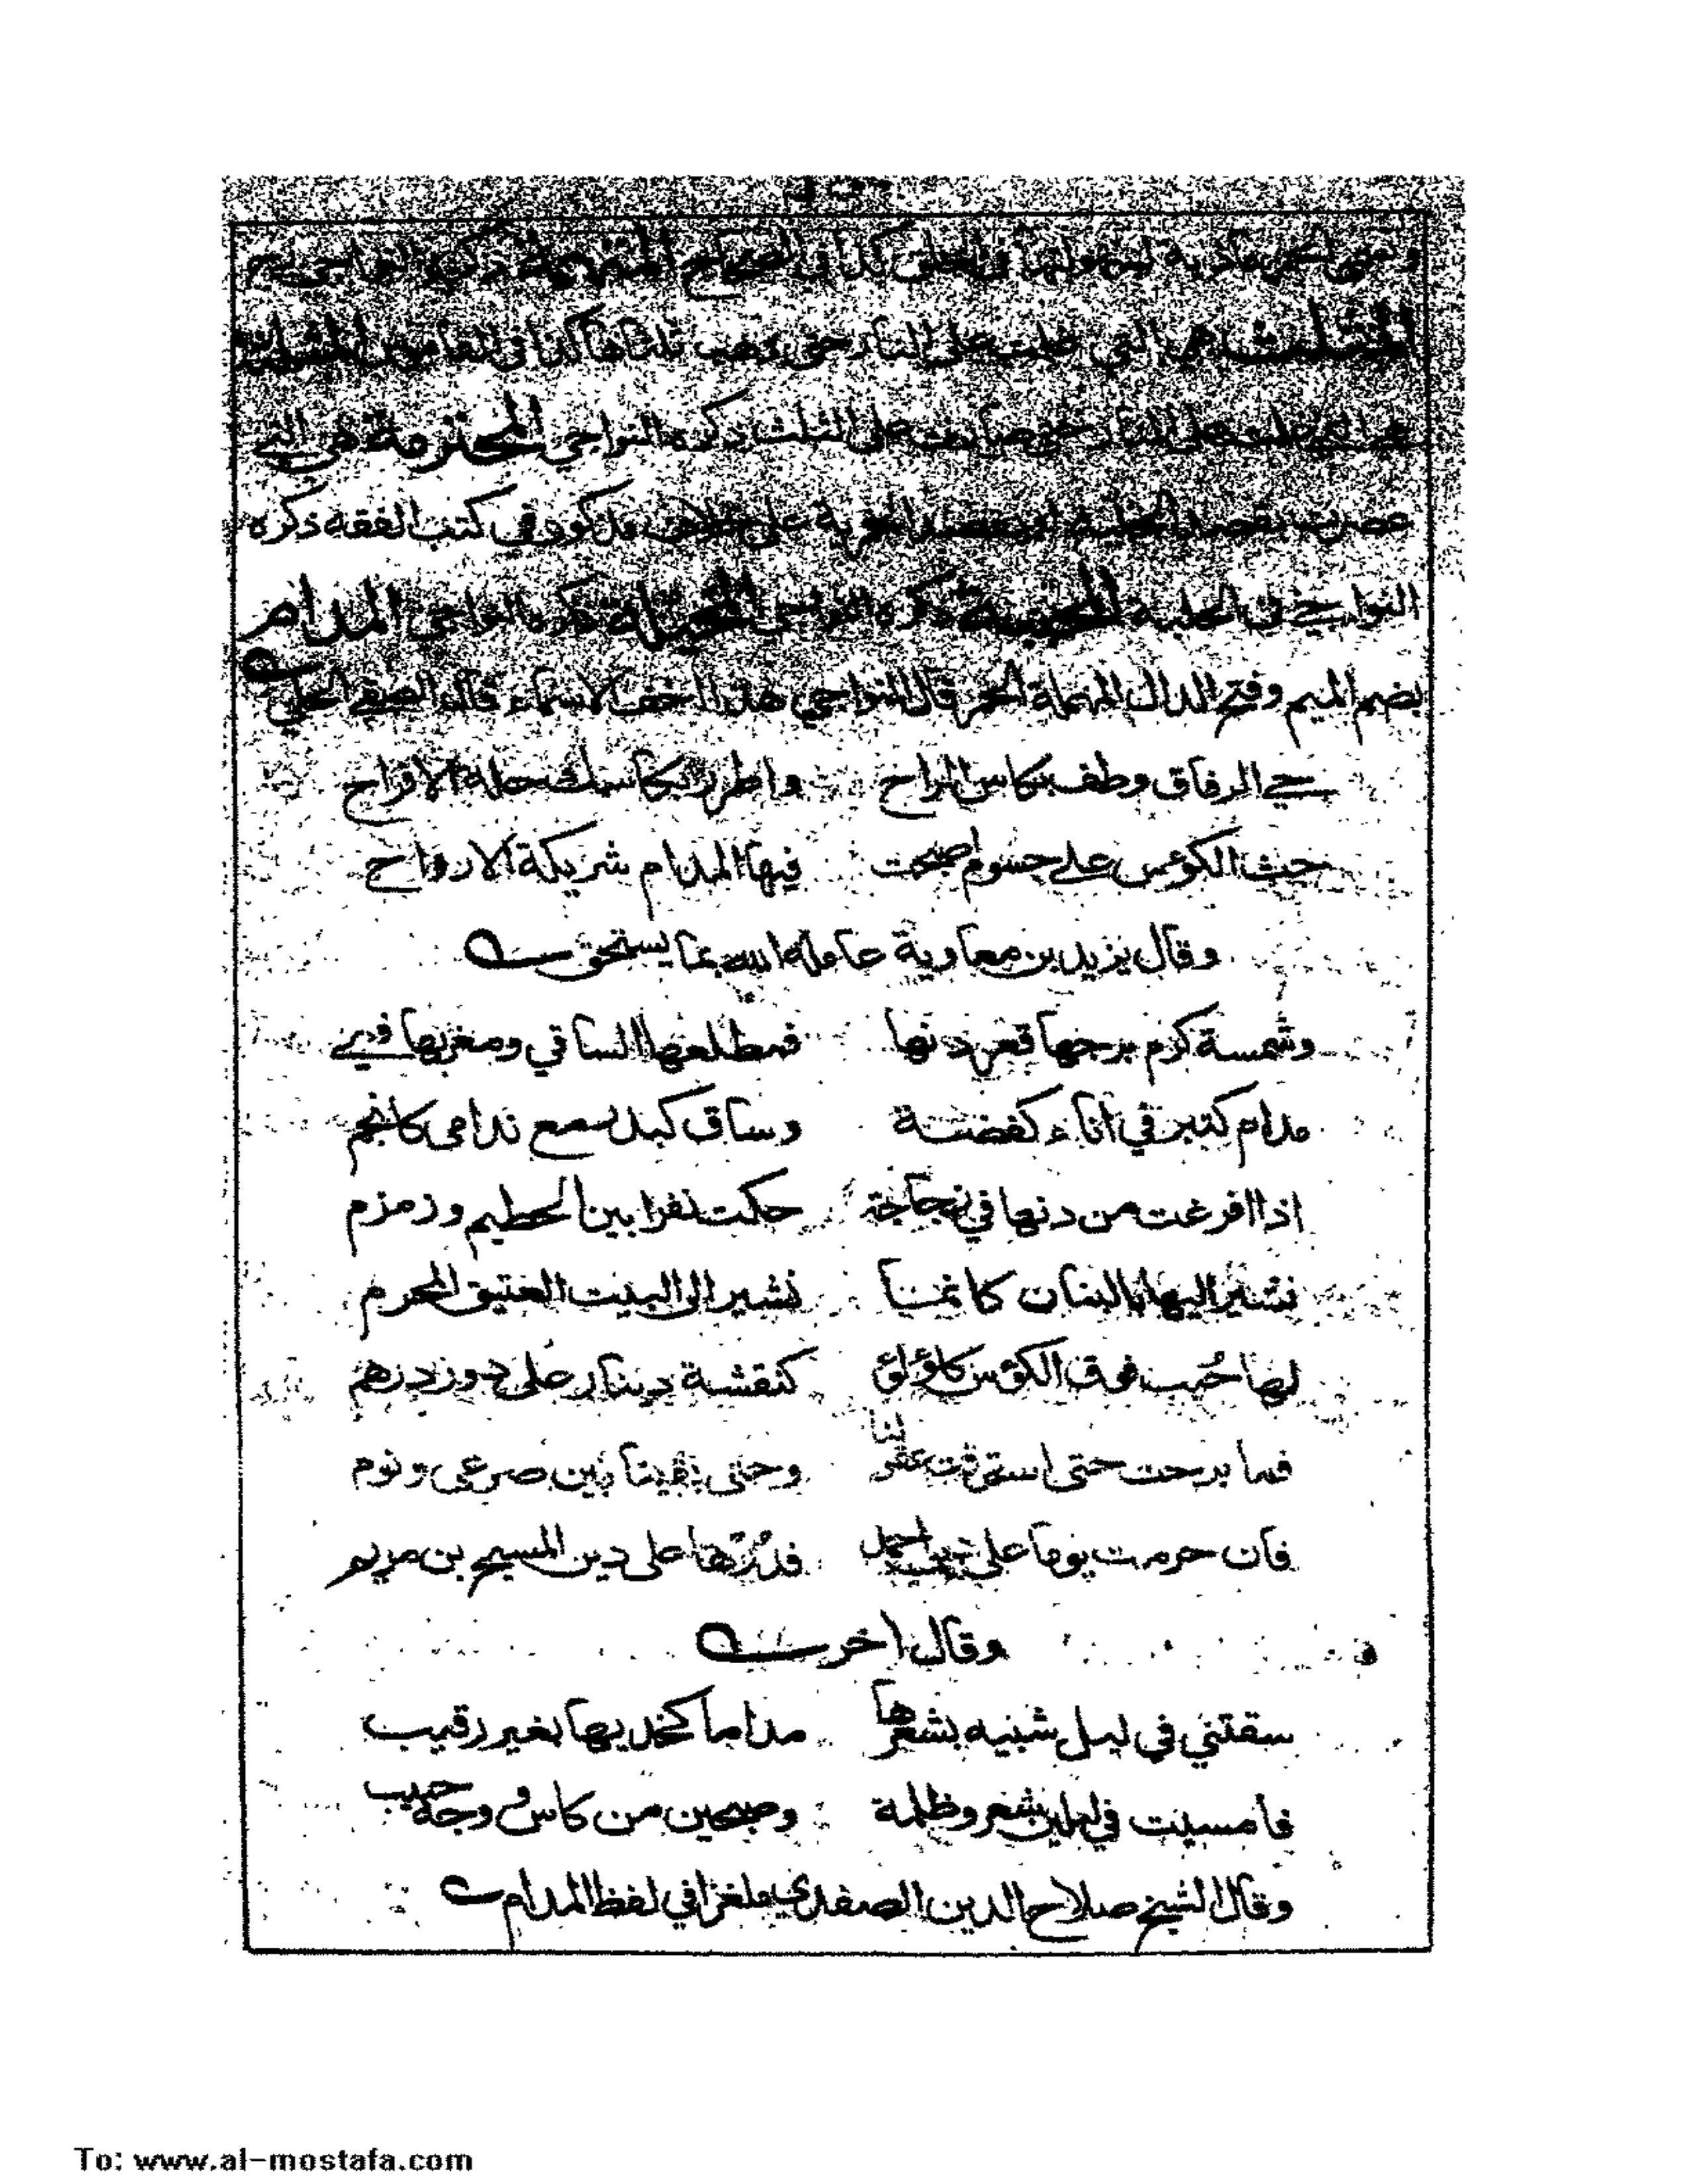 وتسمى الخمر ماذية لسهولتها في الحلق كذا في الصحاح
هي التي طبخت على النار حتى ذهب ثلثاها كذا في القاموس
هي التي طبخت على النار حتى صارت على الثلث ذكره النواجي المحترمة هي التي
عصرت بقصد الخلية على خلاف مذكور في كتب الفقه ذكره
النواجي في الحلبة ذكره النواجي ذكره النواجي المدام
بضم الميم وفتح الدال المهملة الخمر قال النواجي هذا اخف الاسماء قال الصفي الحلي
حي الرفاق وطف بكاس الراح واطرز بكاسك حلة الافراح
حث الكؤس على جسوم اصبحت فيها المدام شريكة الارواح
وقال يزيد بن معاوية عامله الله بما يستحق
وشمسة كرم برجها قعر دنها فمطلعها الساقي ومغربها فمي
مدام كتبر في اناء كفضة وساق كبدر مع ندامى كانجم
اذا افرغت من دنها في زجاجة حكت نفرا بين الحطيم وزمزم
نشير اليها بالبنان كانما نشير الى البيت العتيق المحرم
لها حبب فوق الكؤس كاؤلؤ كنقشة دينار على دور درهم
فما برحت حتى استرقت عقولنا وحتى بقينا بين صرعى ونوم
فان حرمت يوما على دين احمد فدرها على دين المسيح بن مريم
وقال اخر
سقتني في ليل شبيه بشعرها مداما كخديها بغير رقيب
فامسيت في ليلين بشعر وظلمة وصبحين من كاس ووجه حبيب
وقال الشيخ صلاح الدين الصفدي ملغزا في لفظ المدام
To: www.al-mostafa.com